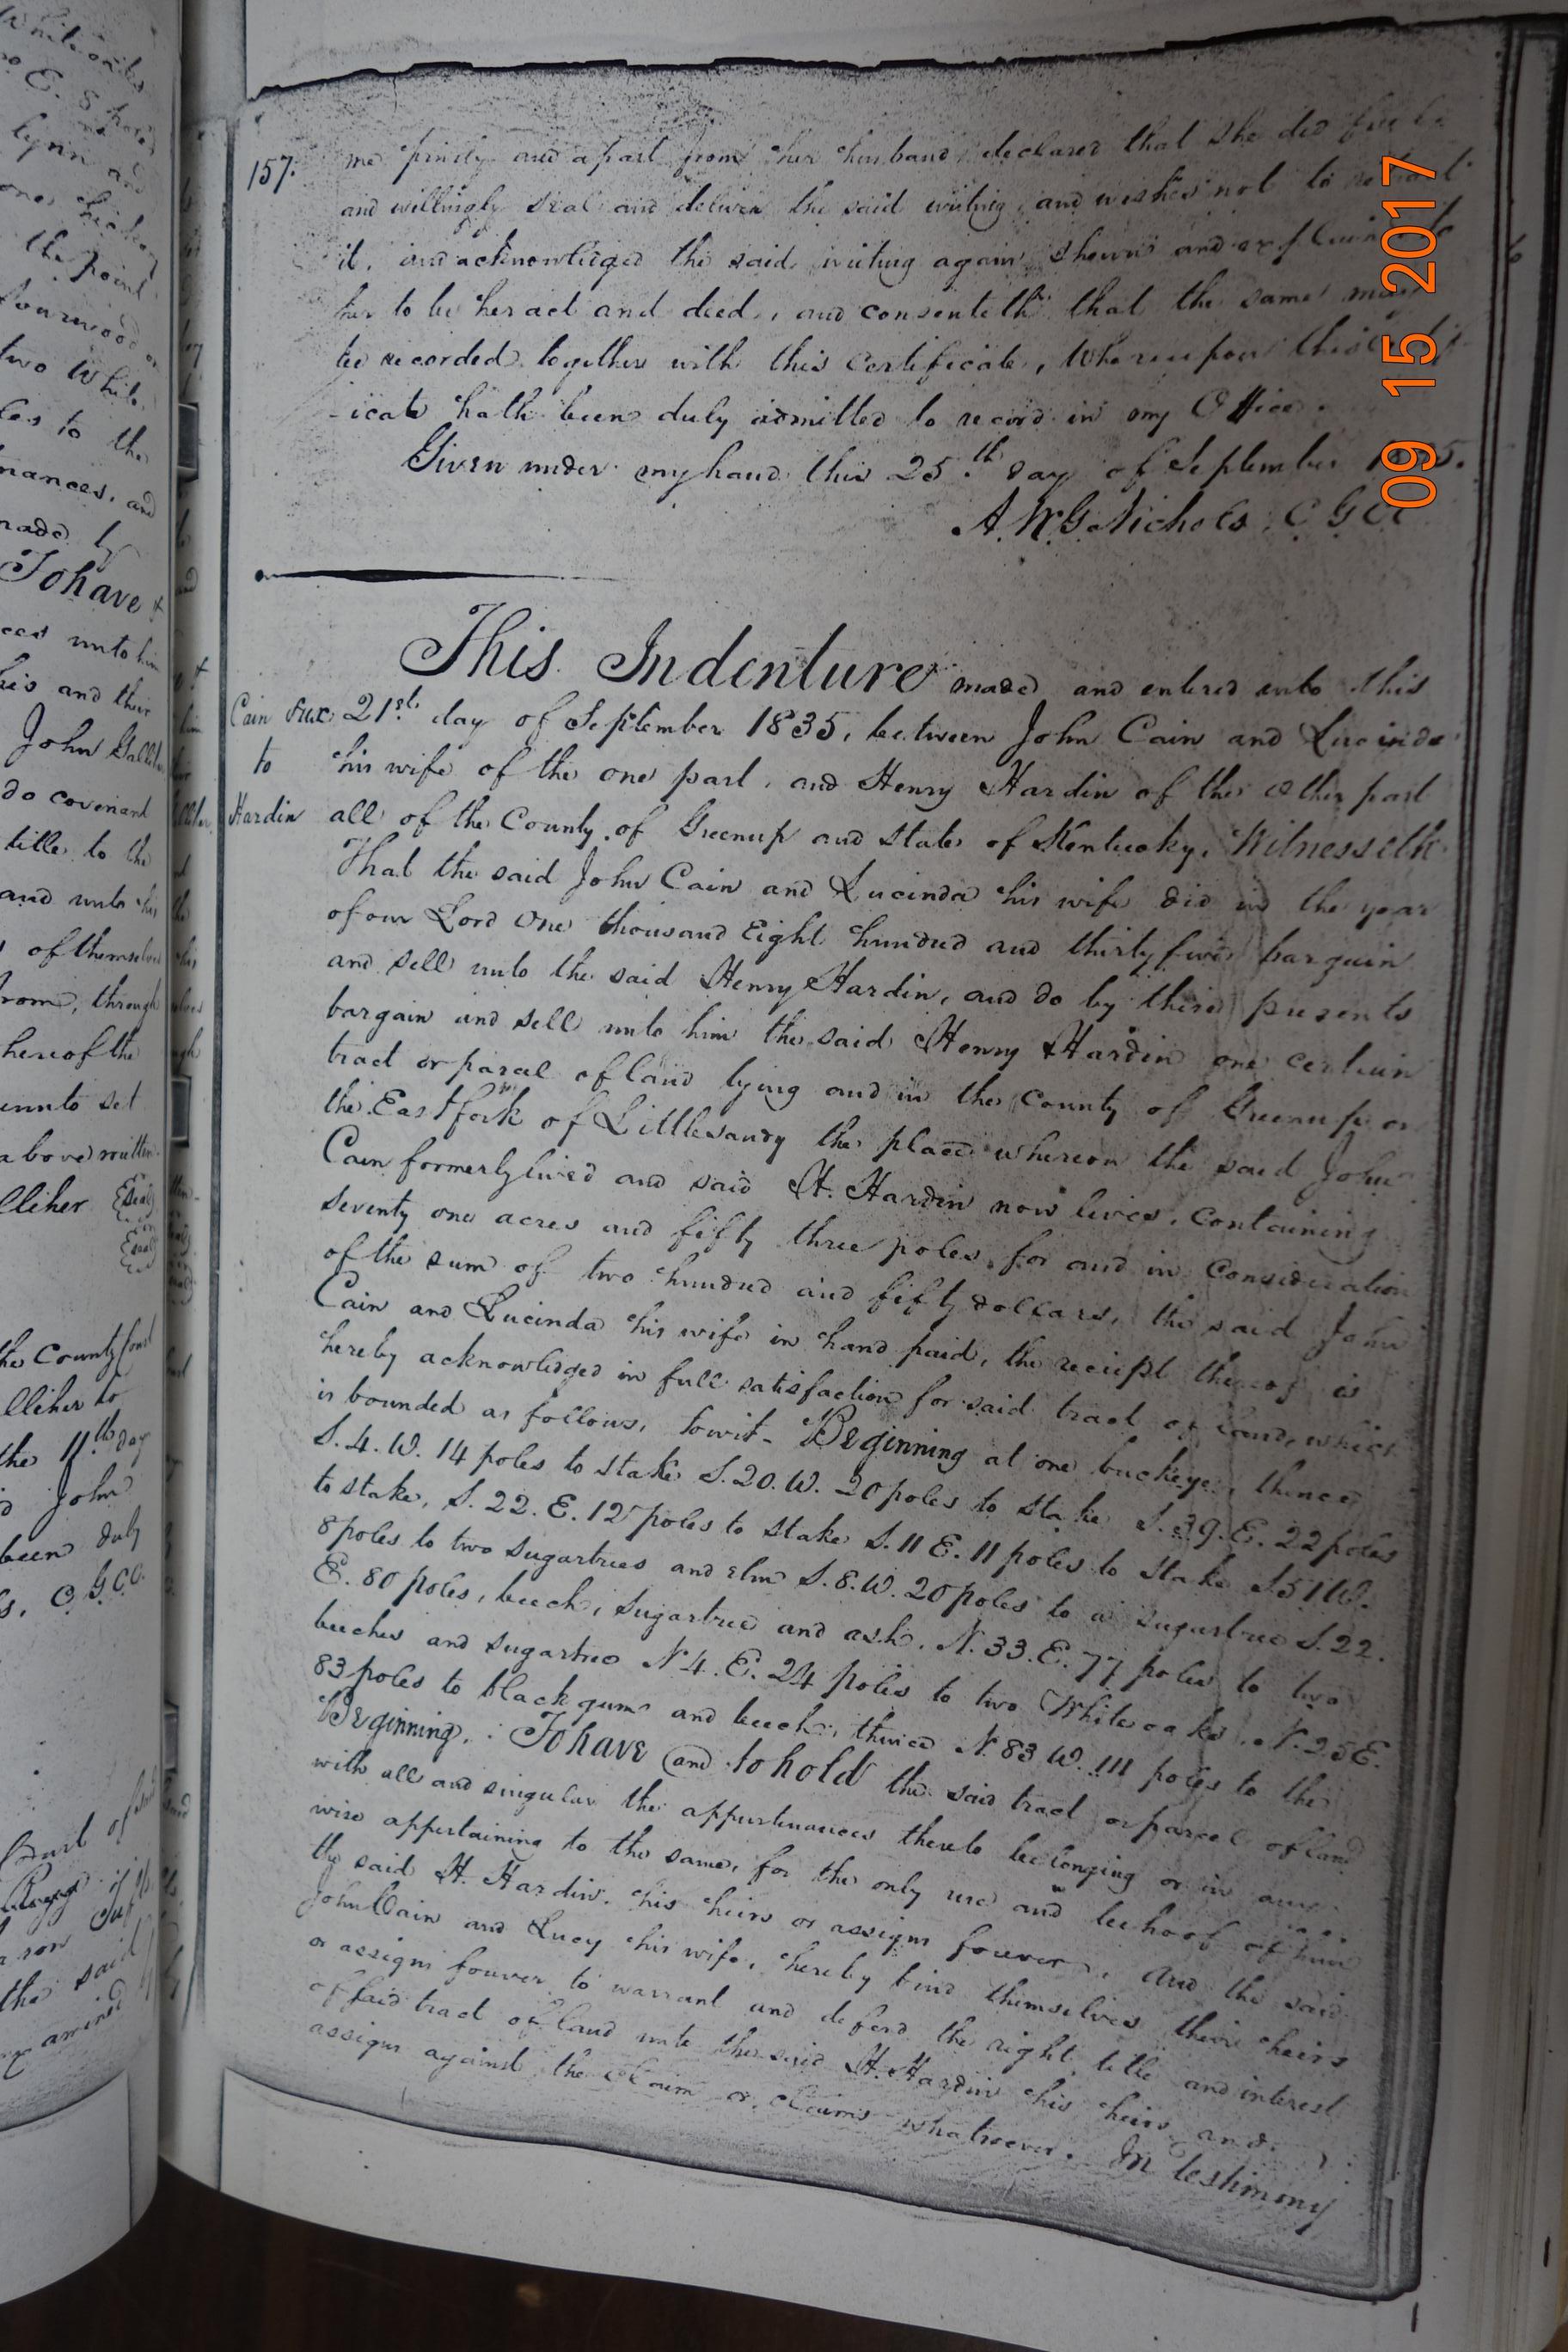 157.
me privily and apart from her husband, declared that she did freely
and willingly seal and deliver the said writing, and wishes not to retract
it, and acknowledged the said writing again shewn and explained to
her to be her act and deed, and consenteth that the same may
be recorded together with this Certificate, Whereupon this Certif-
-icate hath been duly admitted to record in my Office.
Given under my hand this 25th day of September 1835.
A. W. G. Nichols. C G C C
This Indenture made and entered into this
Cain & ux: 21st day of September 1835, between John Cain and Lucinda
to his wife of the one part, and Henry Hardin of the other part
Hardin all of the County of Greenup and state of Kentucky, Witnesseth
That the said John Cain and Lucinda his wife did in the year
of our Lord One thousand Eight hundred and thirty five bargain
and sell unto the said Henry Hardin, and do by these presents
bargain and sell unto him the said Henry Hardin one certain
tract or parcel of land lying and in the County of Greenup on
the East fork of Little sandy the place whereon the said John
Cain formerly lived and said H. Hardin now lives, containing
seventy one acres and fifty three poles, for and in consideration
of the sum of two hundred and fifty dollars, the said John
Cain and Lucinda his wife in hand paid, the reciept thereof is
hereby acknowledged in full satisfaction for said tract of land, which
is bounded as follows, towit- Beginning at one buckeye, thence
S. 4. W. 14 poles to stake S. 20. W. 20 poles to stake S. 39. E. 22 poles
to stake, S. 22. E. 12 poles to stake S. 11 E. 11 poles to stake S. 51 W.
8 poles to two sugartrees and elm S. 8. W. 20 poles to a sugartree S. 22.
E. 80 poles, beech, sugartree and ash, N. 33. E. 77 poles to two
beeches and sugartree N 4. E. 24 poles to two Whiteoaks, N. 25 E.
83 poles to black gum and beech, thence N. 83 W. 111 poles to the
Beginning. To have and to hold the said tract or parcel of land
with all and singular the appurtenances thereto belonging or in any
wise appertaining to the same, for the only use and behoof of him
the said H. Hardin. his heirs or assigns forever, and the said
John Cain and Lucy his wife, hereby bind themselves their heirs
or assigns forever to warrant and defend the right title and interest
of said tract of land unto the said H. Hardin his heirs and
assigns against the claim or claims whatsoever. In testimony
09 15 2017